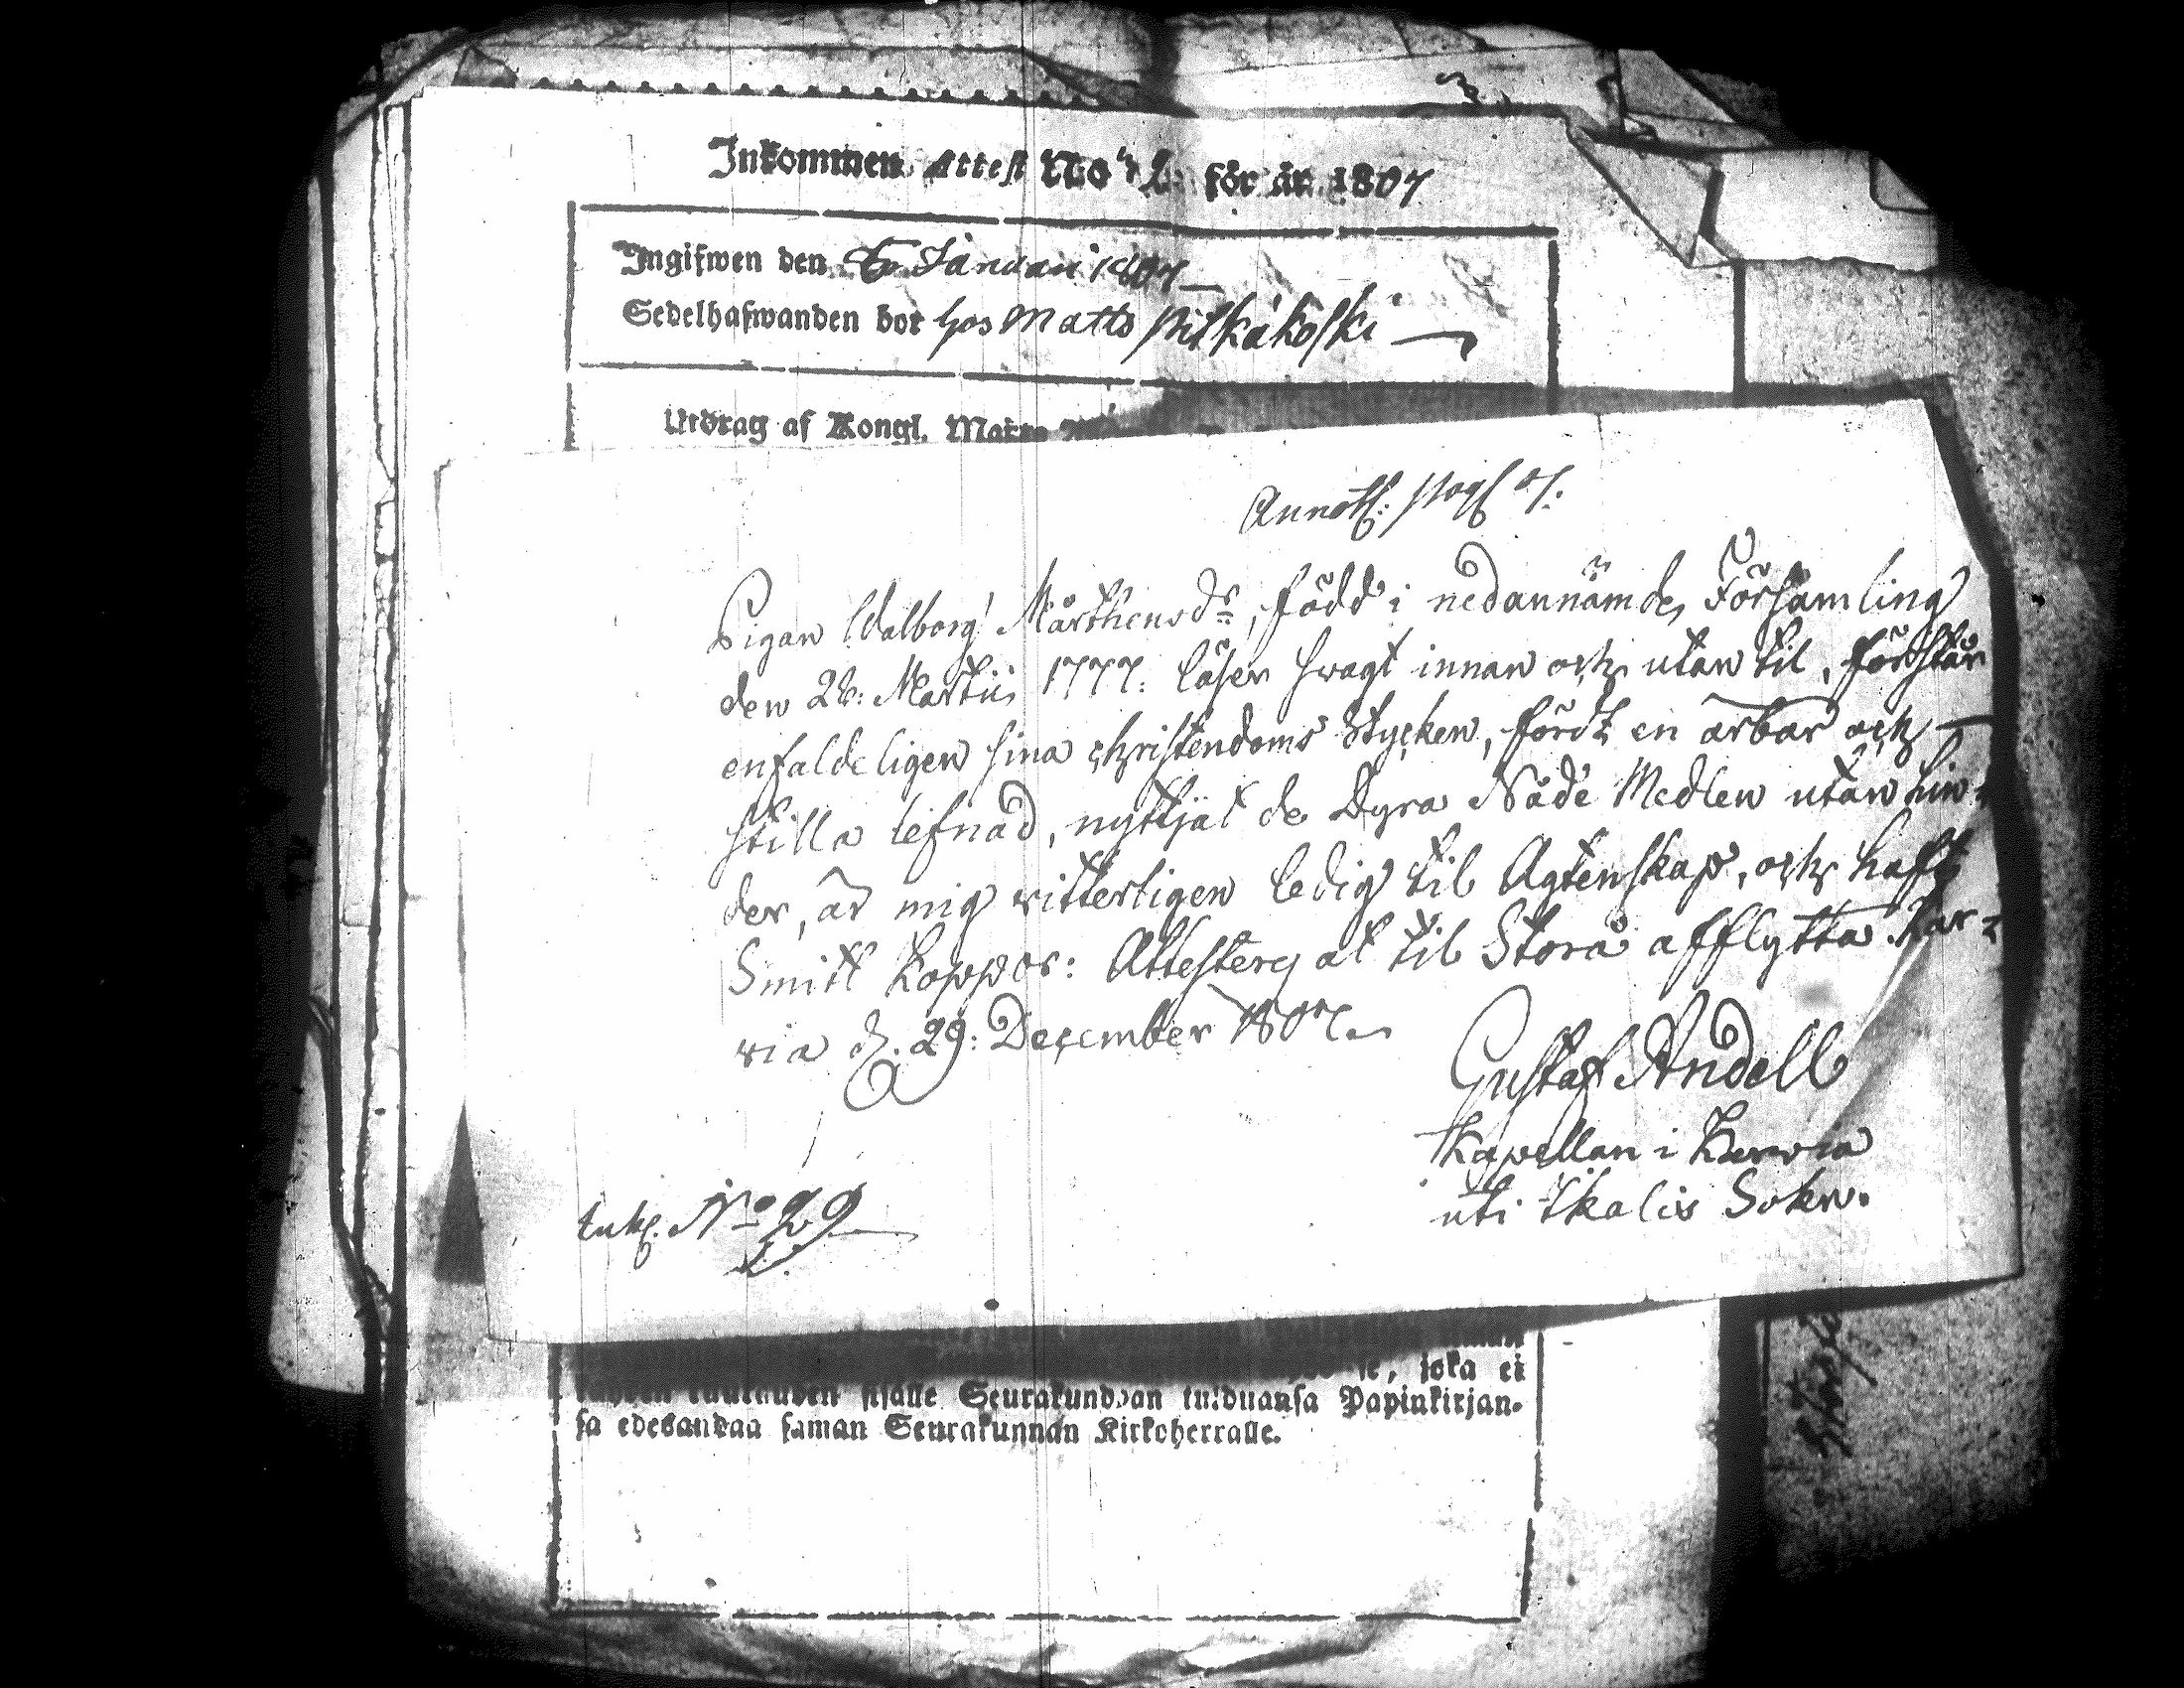 Inkommen Attest No 2. för år 1807
Ingifwen den Januari 1807
Sedelhafwanden bor hos Matts Pitkäkoski
Utdrag af Kongl. Maj:ts
Annoth: pag 07.
Pigan Walborg Mårthensdr, född i nedannämde Församling
den 26: Martii 1777. läser swagt innan och utan til, förstår
enfaldeligen sina christendoms Stycken, fördt en ärbar och
stilla lefnad, nyttjat de Dyra Nåde Medlen utan hin-
der, är mig vitterligen ledig til Ägtenskap, och haft
Smitt Koppor: Attesteras at til Storå afflytta. Kar-
via d. 29: December 1807.
Gustaf Andell
Kapellan i Karvia
uti Ikalis Sokn.
No 29
se, joka ei
sisälle Seurakundaan tulduansa Papinkirjan-
sa edesandaa saman Seurakunnan Kirkoherralle.